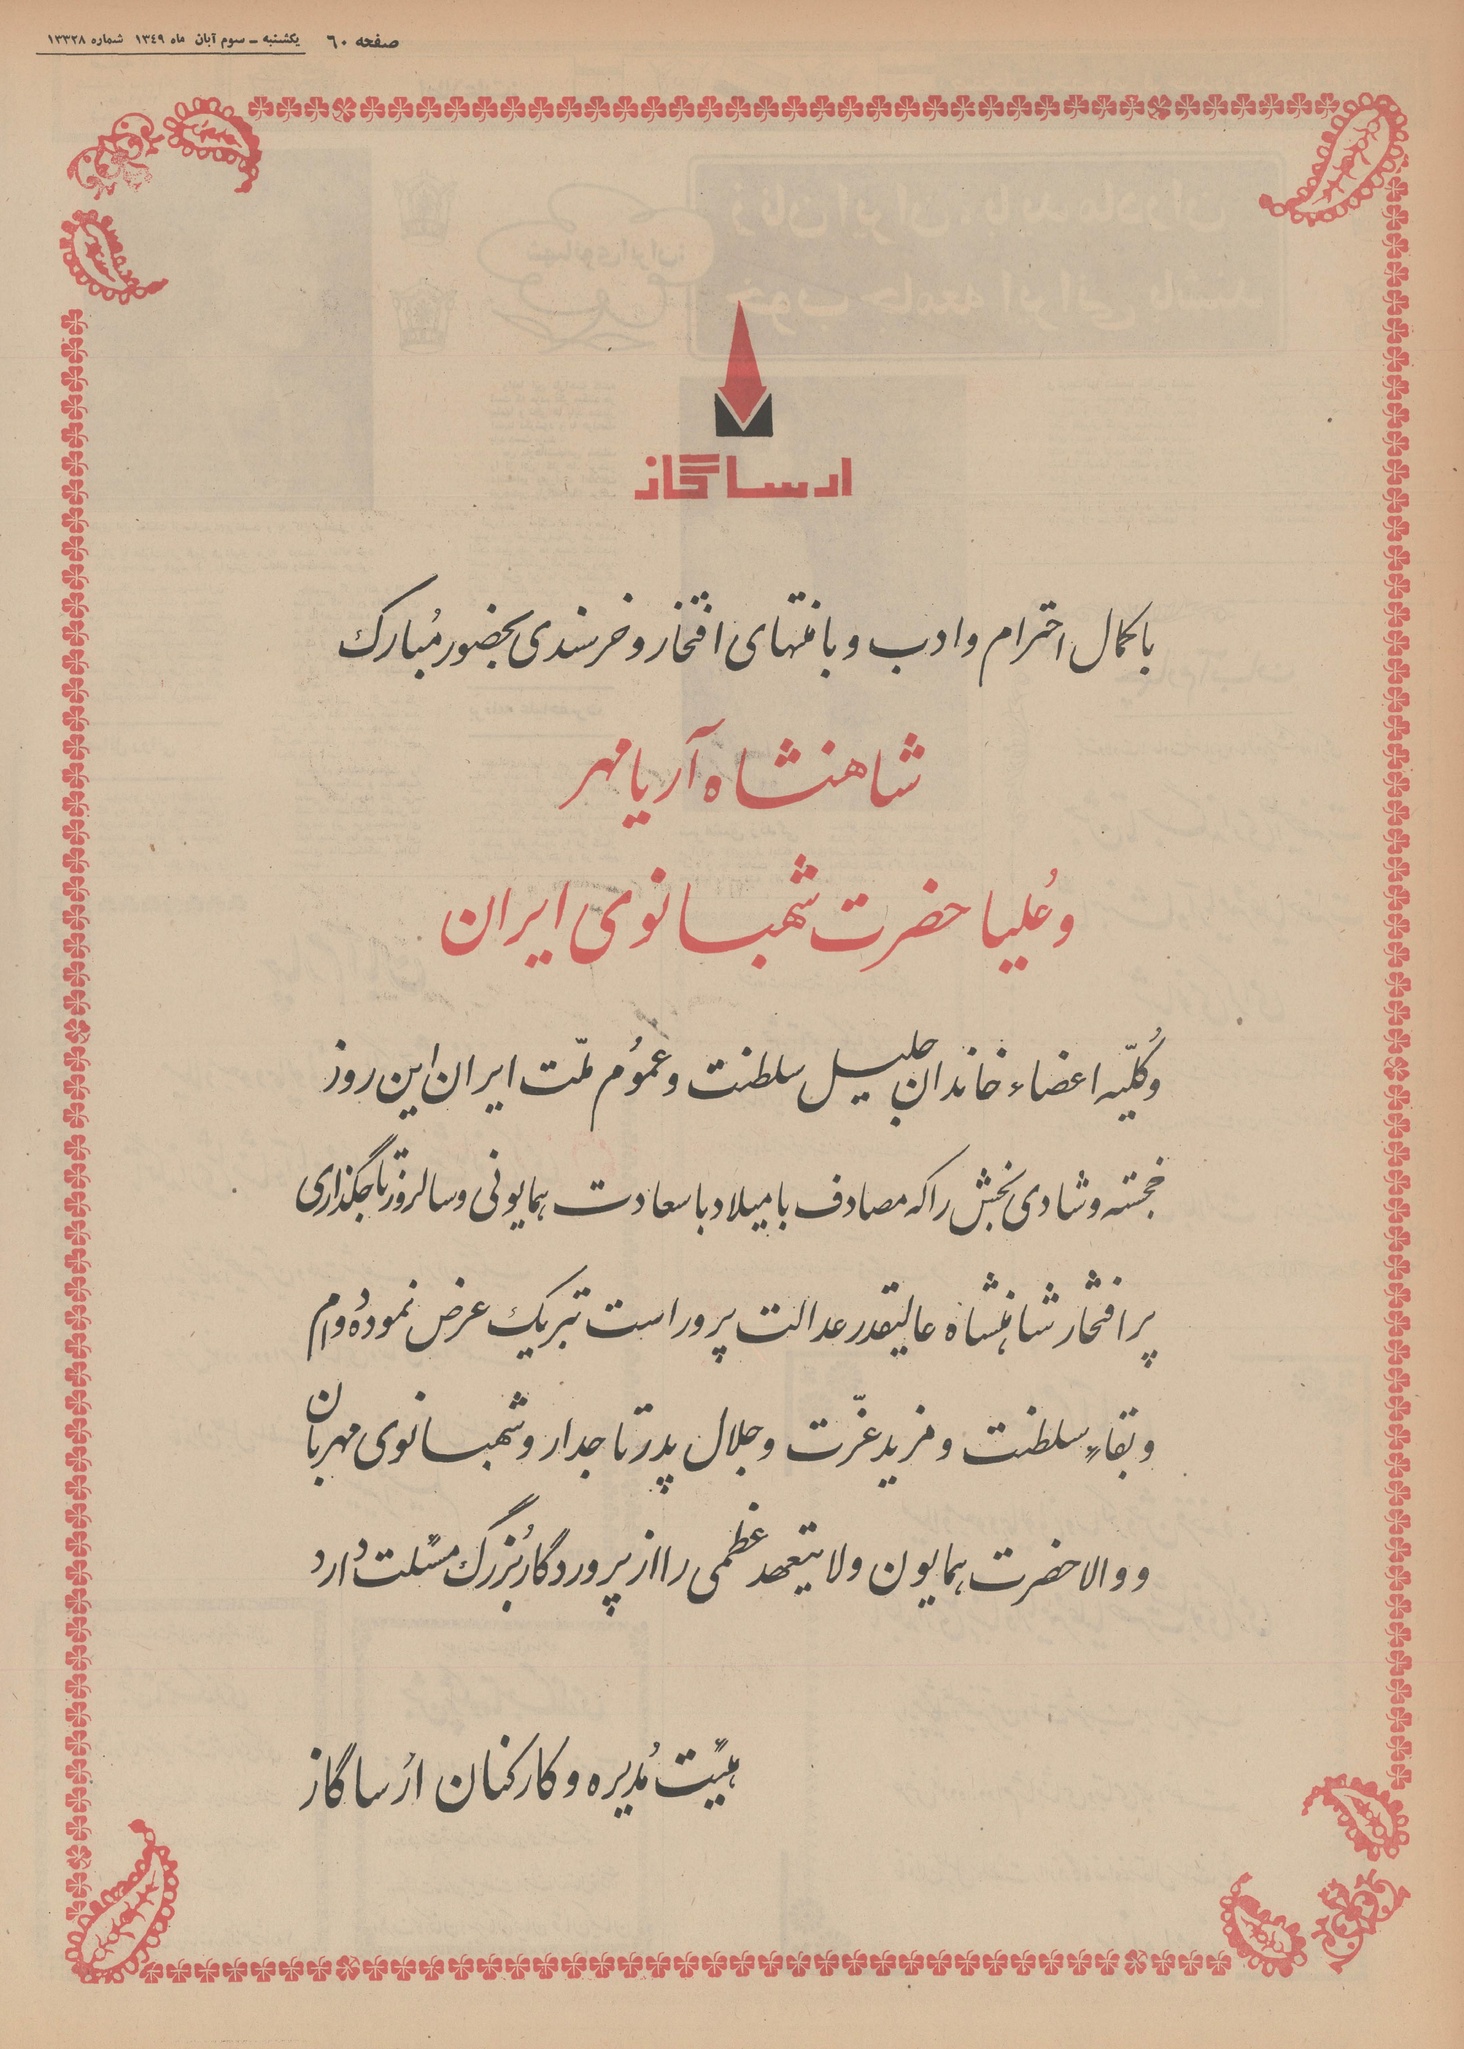 صفحه ٦٠ یکشنبه ـ سوم آبان ماه ١٣٤٩ شماره ١٣٣٢٨
ارساگاز
با کمال احترام و ادب و با منتهای افتخار و خرسندی بحضور مُبارک
شاهنشاه آریامهر
و عُلیا حضرت شهبانوی ایران
و کُلّیه اعضاء خاندان جلیل سلطنت و عمُوم ملّت ایران این روز
خجسته و شادی بخش را که مصادف با میلاد با سعادت همایونی و سالروز تاجگذاری
پر افتخار شاهنشاه عالیقدر عدالت پرور است تبریک عرض نموده دوام
و بقاءِ سلطنت و مزید عزّت و جلال پدر تاجدار و شهبانوی مهربان
و والاحضرت همایون ولایتعهد عظمی را از پروردگار بُزرگ مسئلت دارد
هیئت مُدیره و کارکنان ارُساگاز